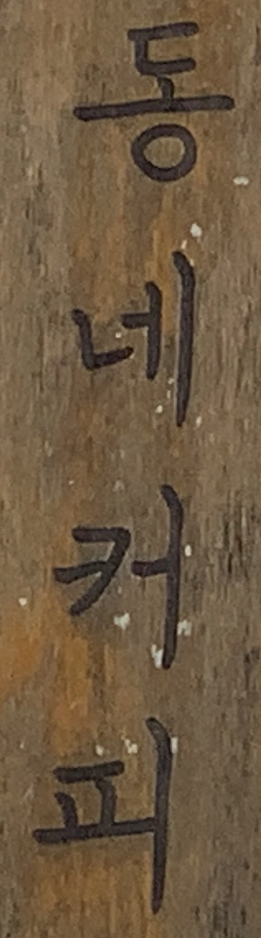 동네커피